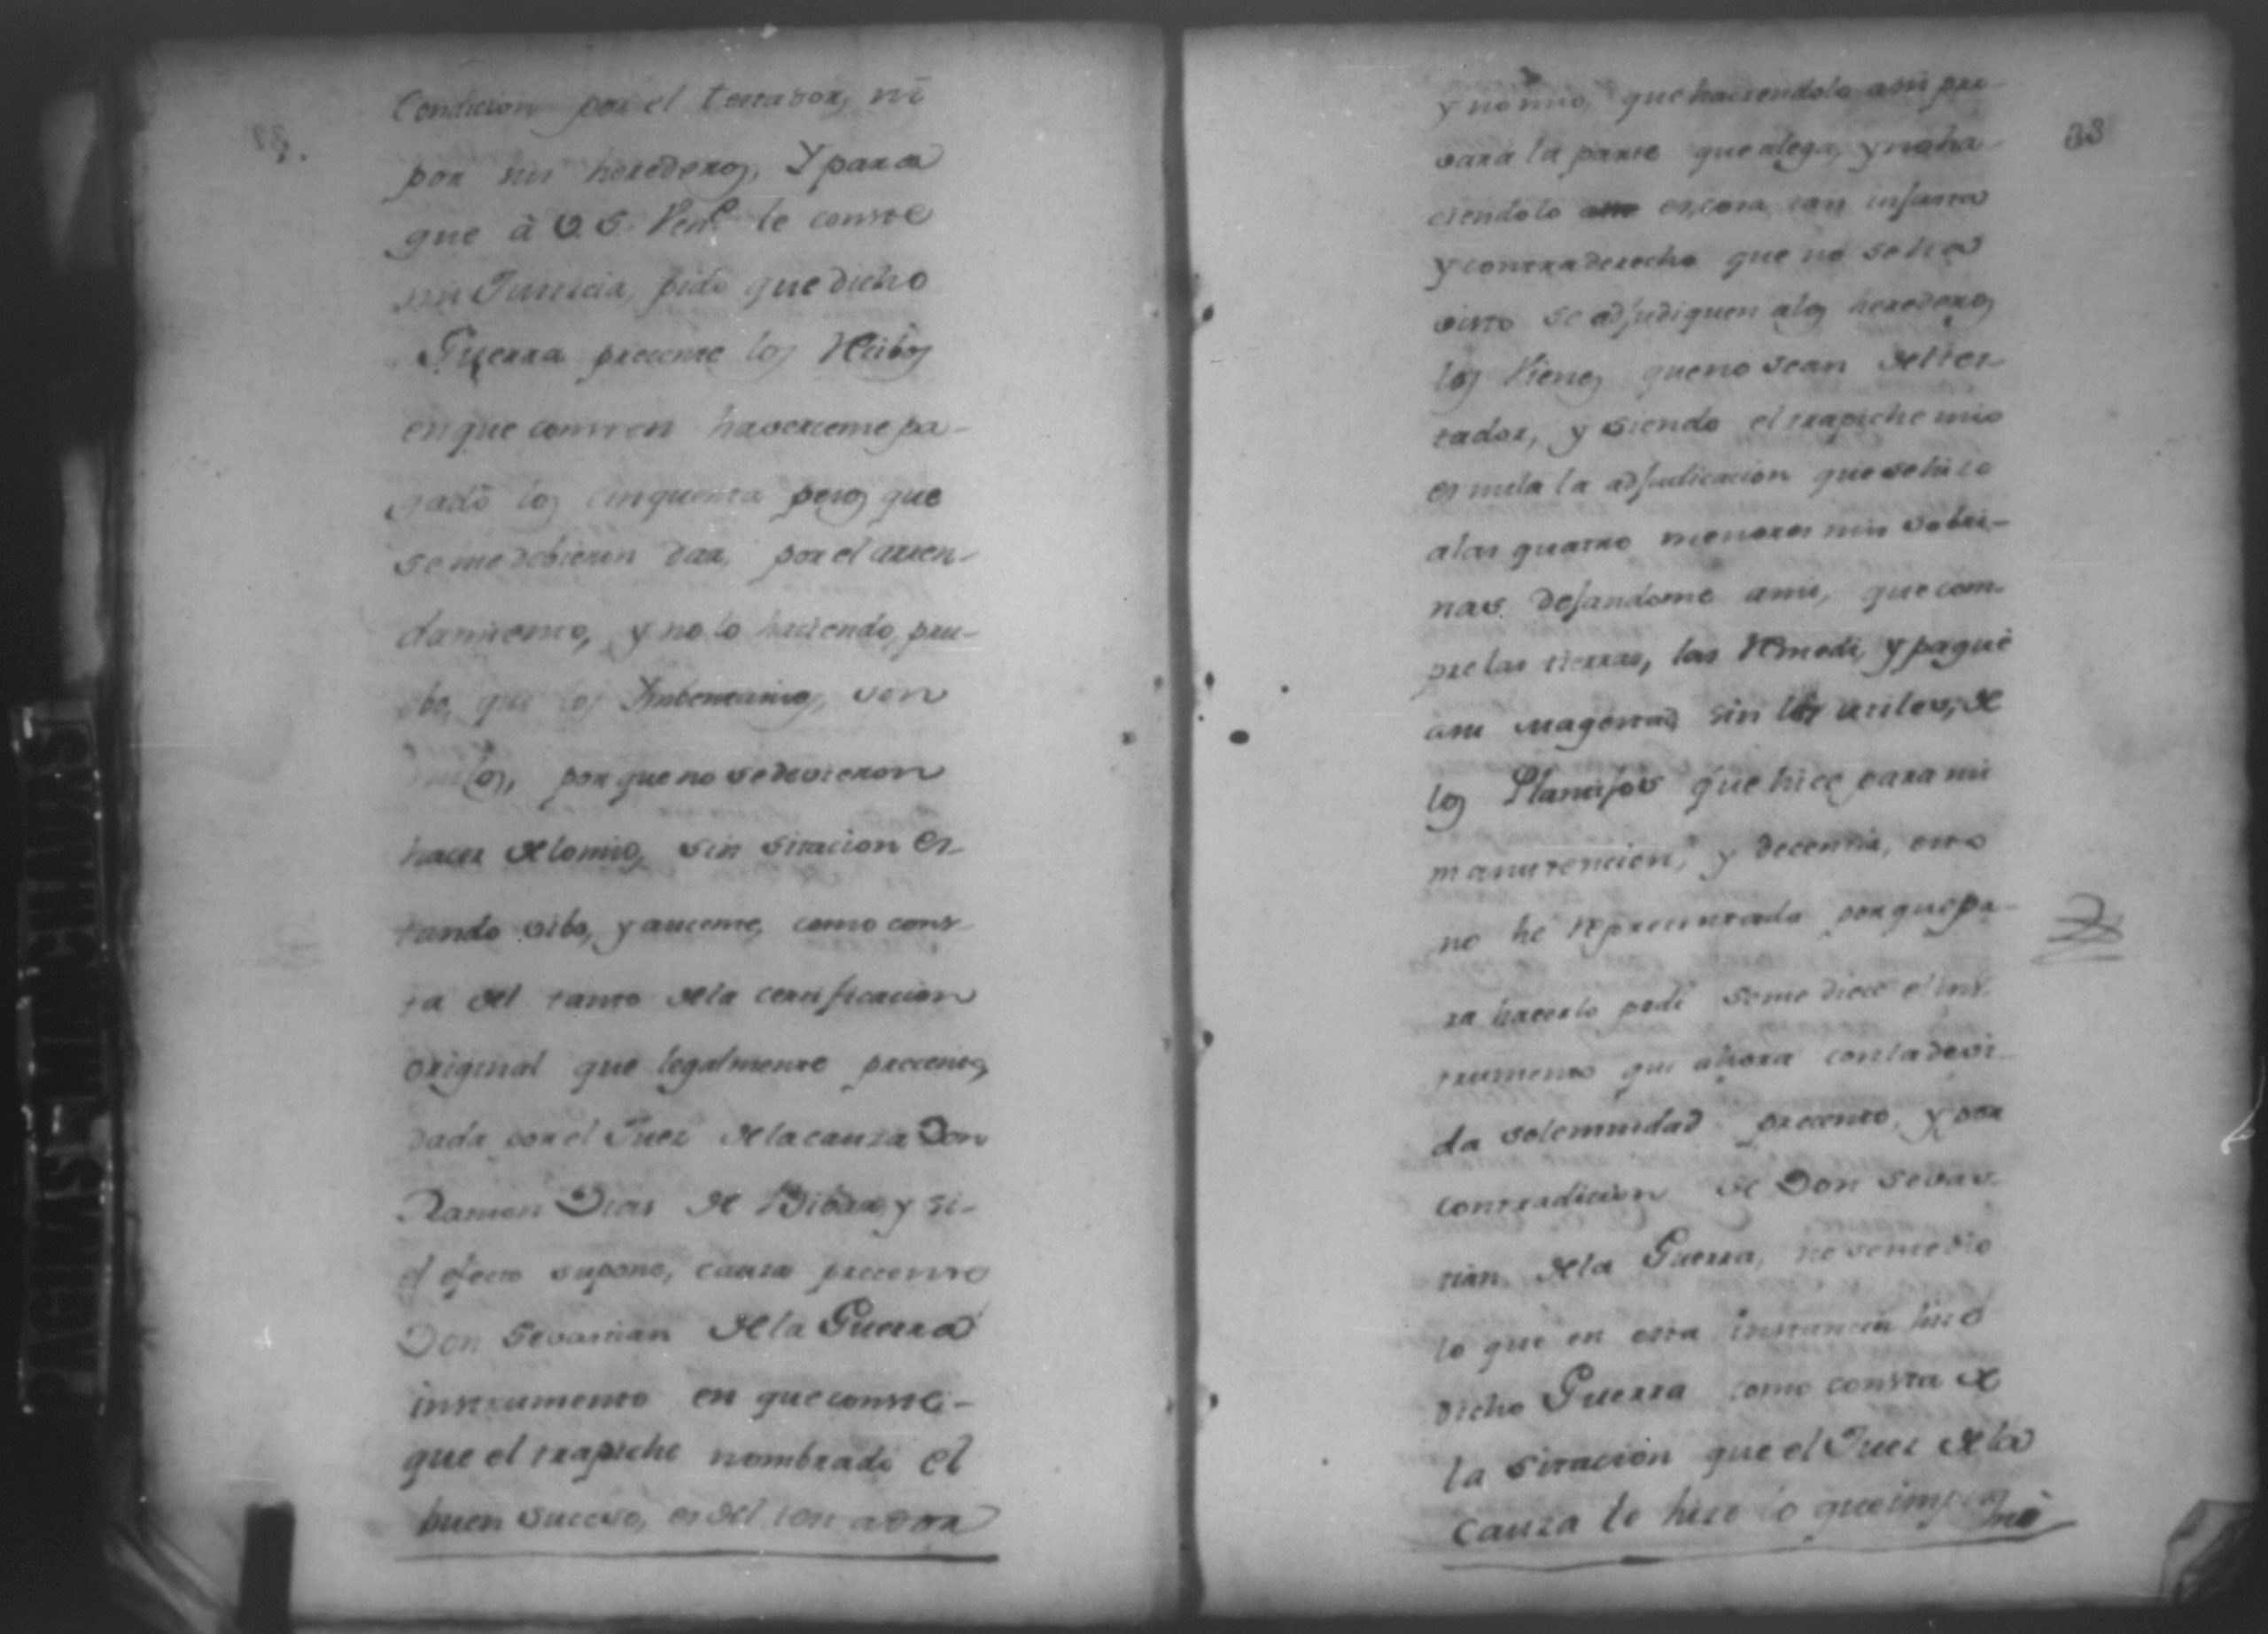 Condicion por el testador, ni
por sus herederos, Y para
que à V. S. Ven.e le conste
mi Justicia, pido que dicho
Guerra precente los Recibos
en que consten haverceme pa-
gado los cinquenta pesos que
se me debieron dar, por el arren-
damiento, y no lo haciendo, pru-
ebo, que los Imbentarios, son
nulos, por que no se devieron
hacer de lo mio, sin sitacion es-
tando vibo, y aucente, como cons-
ta del tanto de la certificacion
original que legalmente precento,
dada por el Juez de la cauza Don
Ramon Dias de Bibar, y si-
el efecto supone, cauza precente
Don Sevastian de la Guerra
instrumento en que conste-
que el trapiche nombrado el
buen suceso, es del testador
33
y no mio, que haciendolo asi pro-
vara la parte que alega, y no ha-
ciendolo es, cosa tan injusta
y contra derecho que no se ha
visto se adjudiquen a los herederos
los Vienes que no sean del tes-
tador, y siendo el trapiche mio
es nula la adjudicacion que se hizo
a las quatro menores mis sobri-
nas. dejandome a mi, que com-
pre las tierras, las Remedi, y paguè
a su Magestad, sin los utiles, de
los Planifos que hice para mi
manutencion, y decencia, esto
no he Reprecentado por que pa-
ra hacerlo pedi se me diece el ins-
trumento que ahora con la devi-
da solemnidad precento, y por
contradicion de Don Sevas-
tian de la Guerra, no se me dio
lo que en esta instancia hizo
dicho Guerra como consta de
la sitacion que el Juez de la
cauza le hizo lo que impugnò